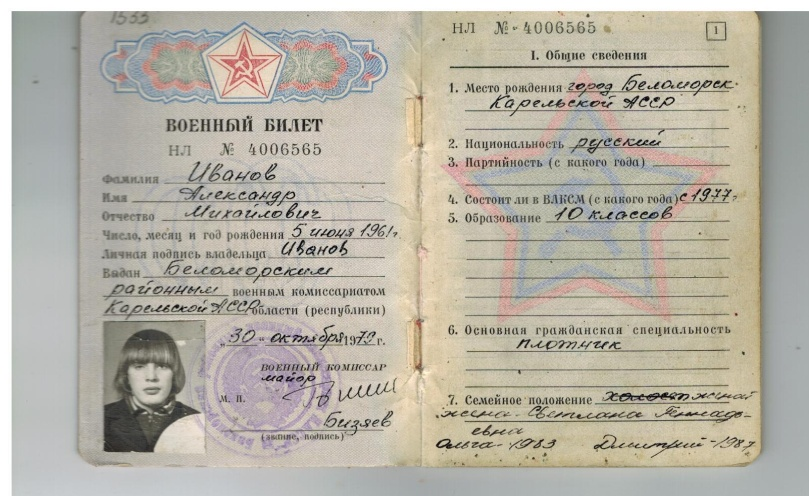 1533
ВОЕННЫЙ БИЛЕТ
НЛ № 4006565
Фамилия Иванов
Имя Александр
Отчество Михайлович
Число, месяц и год рождения 5 июня 1961г.
Личная подпись владельца Иванов
Выдан Беломорским
районным военным комиссариатом
Карельской АССР области (республики)
„30“ октября 1979 г.
ВОЕННЫЙ КОМИССАР
майор
М. П.
Бизяев
(звание, подпись)
НЛ № 4006565
1
I. Общие сведения
1. Место рождения город Беломорск
Карельской АССР
2. Национальность русский
3. Партийность (с какого года)
4. Состоит ли в ВЛКСМ (с какого года) с 1977г
5. Образование 10 классов
6. Основная гражданская специальность
плотник
7. Семейное положение холост женат
жена - Светлана Геннадь-
евна
Ольга - 1983 Дмитрий - 1987